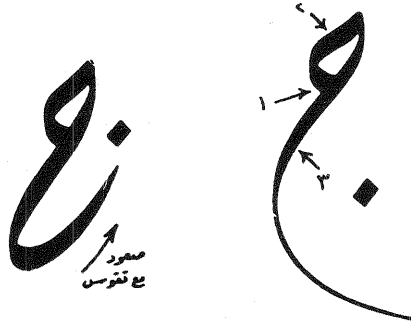 ٢
ج
١
٣
ج
صعود
مع تقوس